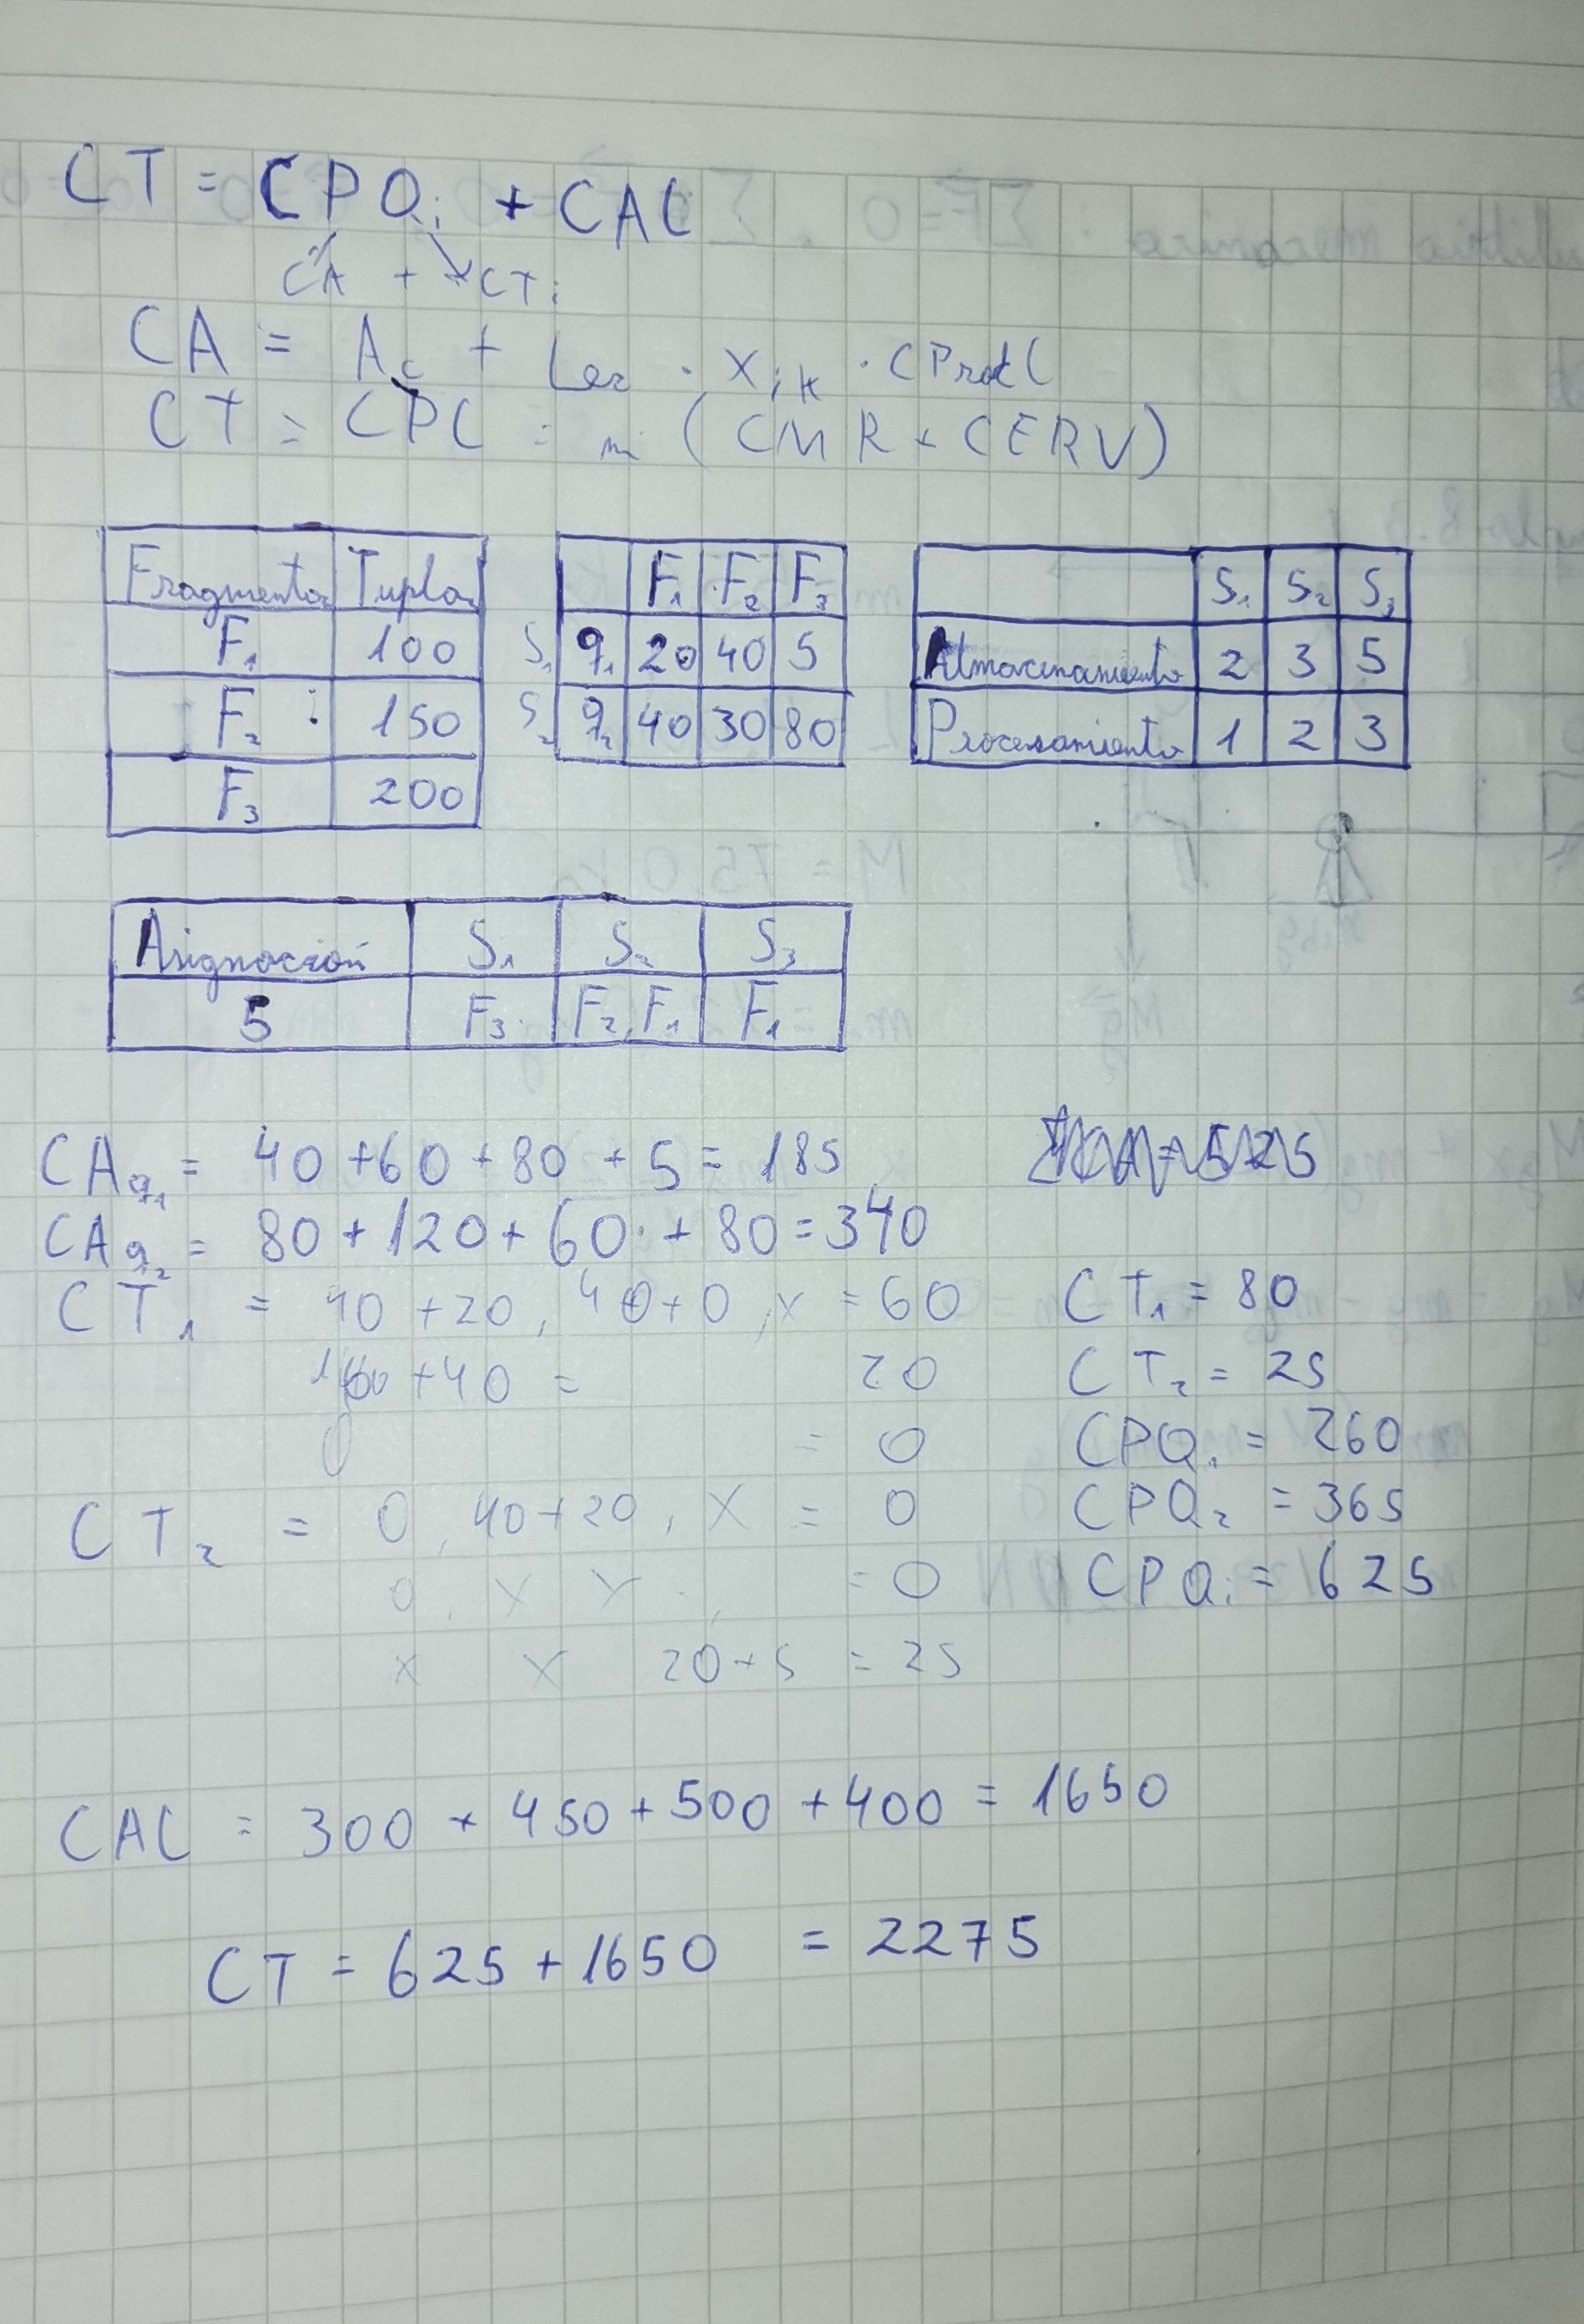 CT = CPQi + CAL
CA + CTi
CA = Ac + Lec · Xik · CProcL
CT = CPC = m (CMR + CERV)
Fragmentos Tuplas
F1 100
F2 150
F3 200
F1 F2 F3
S1 q1 20 40 5
S2 q2 40 30 80
S1 S2 S3
Almacenamiento 2 3 5
Procesamiento 1 2 3
Asignación S1 S2 S3
5 F3 F2, F1 F1
CAq1 = 40 + 60 + 80 + 5 = 185
CAq2 = 80 + 120 + 60 + 80 = 340
CT1 = 40 + 20, 40 + 0, x = 60 CT1 = 80
+ 40 = 20 CT2 = 25
0 = 0 CPQ1 = 260
CT2 = 0, 40 + 20, X = 0 CPQ2 = 365
0, X X = 0 CPQi = 625
X X 20 + 5 = 25
CAL = 300 + 450 + 500 + 400 = 1650
CT = 625 + 1650 = 2275